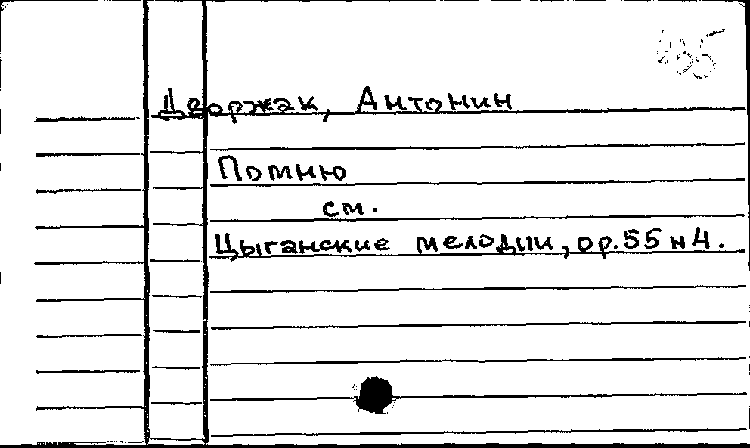 Дворжак, Антонин
Помню
см.
Цыганские мелодии, ор.55 н 4.